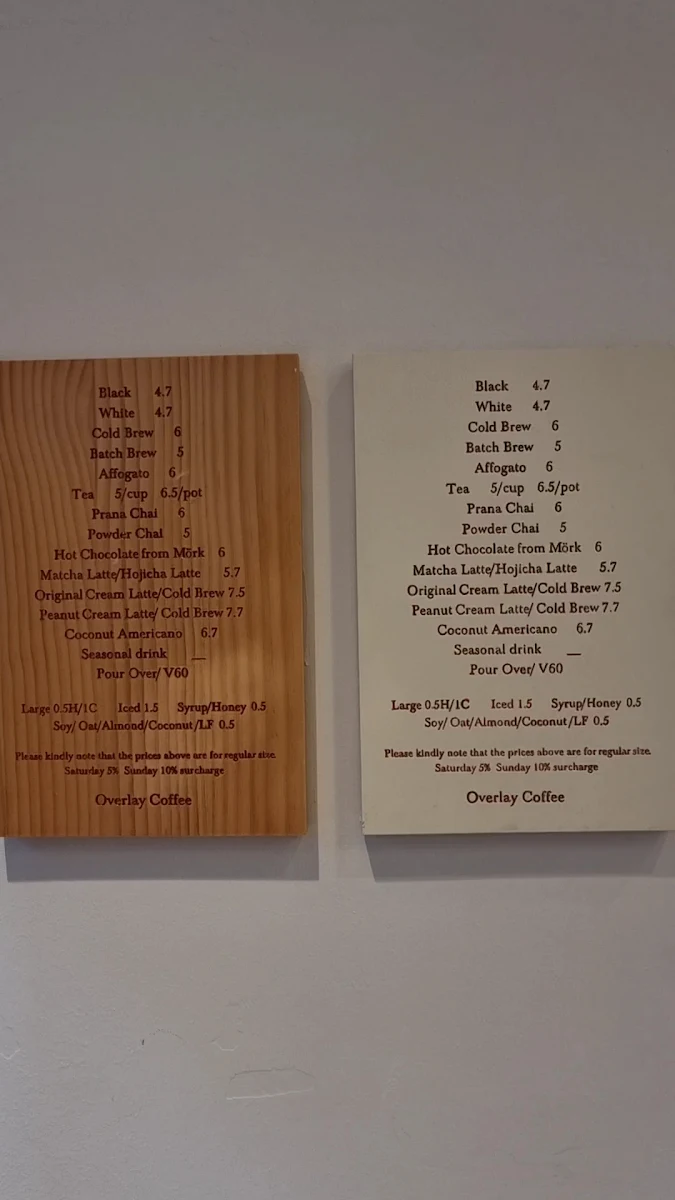 Black 4.7
White 4.7
Cold Brew 6
Batch Brew 5
Affogato 6
Tea 5/cup 6.5/pot
Prana Chai 6
Powder Chai 5
Hot Chocolate from Mörk 6
Matcha Latte/Hojicha Latte 5.7
Original Cream Latte/Cold Brew 7.5
Peanut Cream Latte/ Cold Brew 7.7
Coconut Americano 6.7
Seasonal drink __
Pour Over/ V60
Large 0.5H/1C Iced 1.5 Syrup/Honey 0.5
Soy/ Oat/Almond/Coconut/LF 0.5
Please kindly note that the prices above are for regular size.
Saturday 5% Sunday 10% surcharge
Overlay Coffee
Black 4.7
White 4.7
Cold Brew 6
Batch Brew 5
Affogato 6
Tea 5/cup 6.5/pot
Prana Chai 6
Powder Chai 5
Hot Chocolate from Mörk 6
Matcha Latte/Hojicha Latte 5.7
Original Cream Latte/Cold Brew 7.5
Peanut Cream Latte/ Cold Brew 7.7
Coconut Americano 6.7
Seasonal drink __
Pour Over/ V60
Large 0.5H/1C Iced 1.5 Syrup/Honey 0.5
Soy/ Oat/Almond/Coconut/LF 0.5
Please kindly note that the prices above are for regular size.
Saturday 5% Sunday 10% surcharge
Overlay Coffee